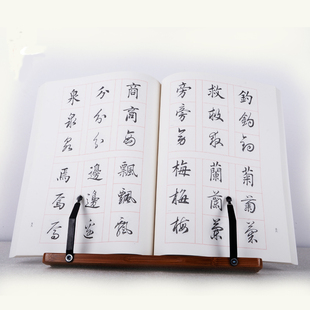 泉泉泉
分分分
商商商
焉焉焉
邊邊邊
飄飄飄
旁旁旁
救救救
釣釣釣
梅梅梅
蘭蘭蘭
菊菊菊